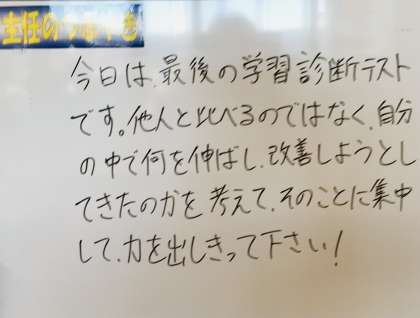 主任のつぶやき
今日は、最後の学習診断テスト
です。他人と比べるのではなく、自分
の中で何を伸ばし、改善しようとし
てきたのかを考えて、そのことに集中
して、力を出しきって下さい！